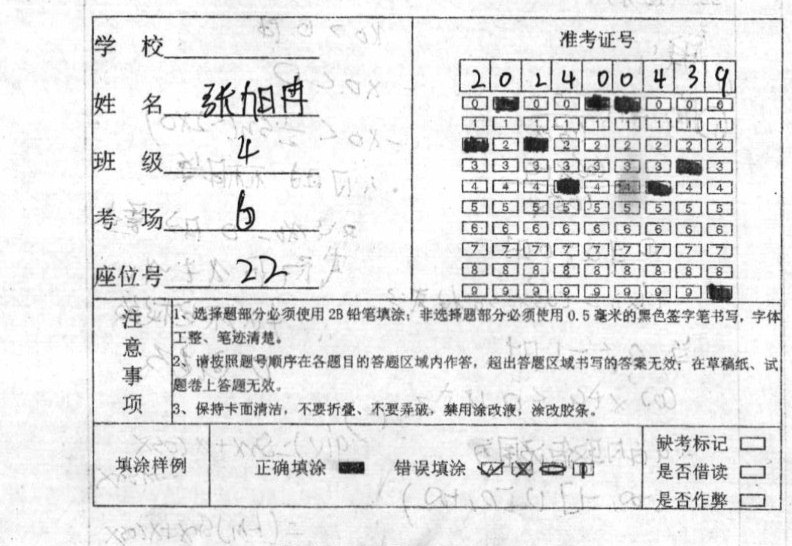 学 校
姓 名 张旭冉
班 级 4
考 场 6
座位号 22
准考证号
2 0 2 4 0 0 4 3 9
0 0 0 0 0 0
1 1 1 1 1 1 1 1 1
2 2 2 2 2 2 2
3 3 3 3 3 3 3 3
4 4 4 4 4 4 4
5 5 5 5 5 5 5 5 5
6 6 6 6 6 6 6 6 6
7 7 7 7 7 7 7 7 7
8 8 8 8 8 8 8 8 8
9 9 9 9 9 9 9 9
注意事项
1、选择题部分必须使用 2B 铅笔填涂；非选择题部分必须使用 0.5 毫米的黑色签字笔书写，字体
工整、笔迹清楚。
2、请按照题号顺序在各题目的答题区域内作答，超出答题区域书写的答案无效；在草稿纸、试
题卷上答题无效。
3、保持卡面清洁，不要折叠、不要弄破，禁用涂改液，涂改胶条。
填涂样例 正确填涂 错误填涂
缺考标记
是否借读
是否作弊